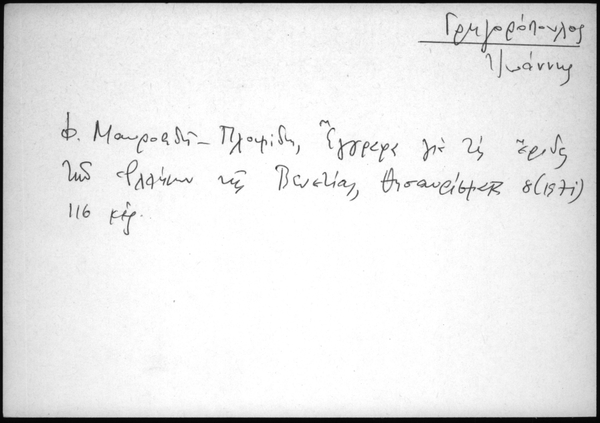 Γρηγορόπουλος
Ἰωάννης
Φ. Μαυροειδῆ - Πλουμίδη, Ἔγγραφα γιὰ τὶς ἔριδες
τῶν Ἑλλήνων τῆς Βενετίας, Θησαυρίσματα 8 (1971)
116 κἑξ.